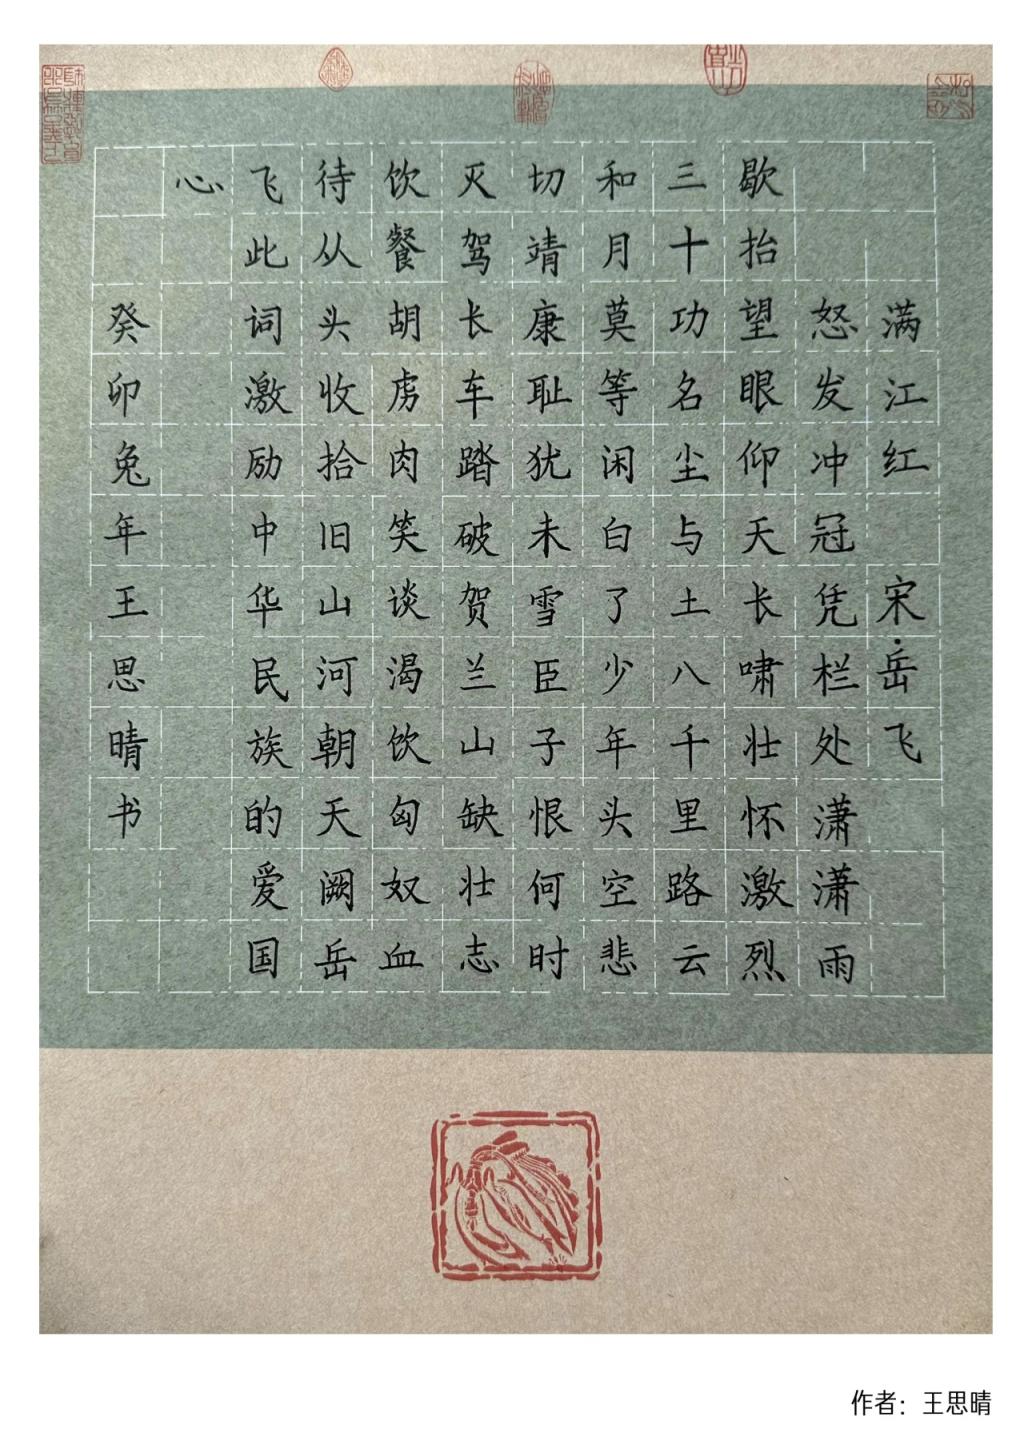 满江红 宋·岳飞
怒发冲冠凭栏处潇潇雨
歇抬望眼仰天长啸壮怀激烈
三十功名尘与土八千里路云
和月莫等闲白了少年头空悲
切靖康耻犹未雪臣子恨何时
灭驾长车踏破贺兰山缺壮志
饮餐胡虏肉笑谈渴饮匈奴血
待从头收拾旧山河朝天阙岳
飞此词激励中华民族的爱国
心
癸卯兔年王思晴书
作者：王思晴